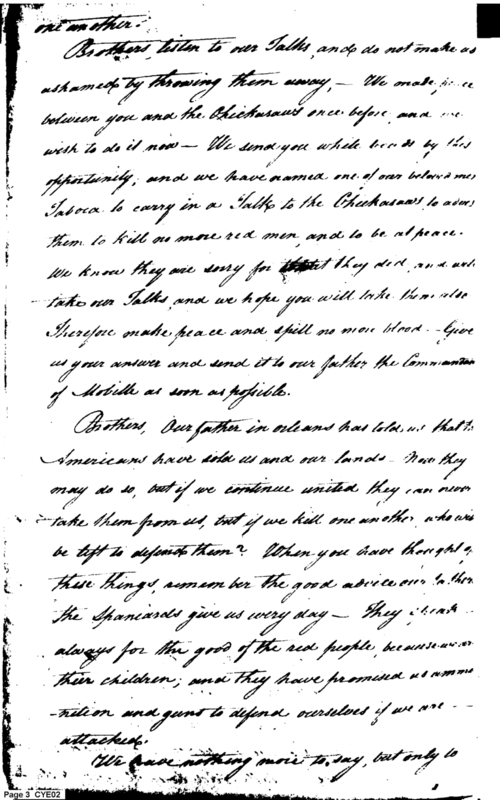 one another.
Brothers, listen to our Talks, and do not make us
ashamed by throwing them away, — We made peace
between you and the Chickasaws once before, and we
wish to do it now — We send you white beads by this
opportunity, and we have named one of our beloved men
Taboca to carry in a Talk to the Chickasaws to advise
them to kill no more red men, and to be at peace.
We know they are sorry for they did, and will
take our Talks, and we hope you will take them also
Therefore make peace and spill no more blood — Give
us your answer and send it to our father the Commandan
of Mobille as soon as possible.
Brothers, Our father in orleans has told us that the
Americans have sold us and our lands — Now they
may do so, but if we continue united they can never
take them from us, but if we kill one another who will
be left to defend them? When you have thought of
these things, remember the good advice our father
the Spaniards give us every day — They speak
always for the good of the red people, because we are
their children, and they have promised us ammu
-nition and guns to defend ourselves if we are —
attacked.
We have nothing more to say, but only to
Page 3 CYE02